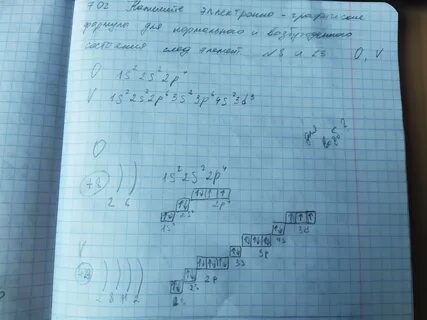 702 Напишите электронно-графические
формулы для нормального и возбужденного
состояния след элемент №8 и 23 O, V
O 1s²2s²2p⁴
V 1s²2s²2p⁶3s²3p⁶4s²3d³
для
возб
?
O
+8
2 6
1s²2s²2p⁴
1s 2s 2p⁴
V
2 8 11 2
1s 2s 2p 3s 3p 4s 3d